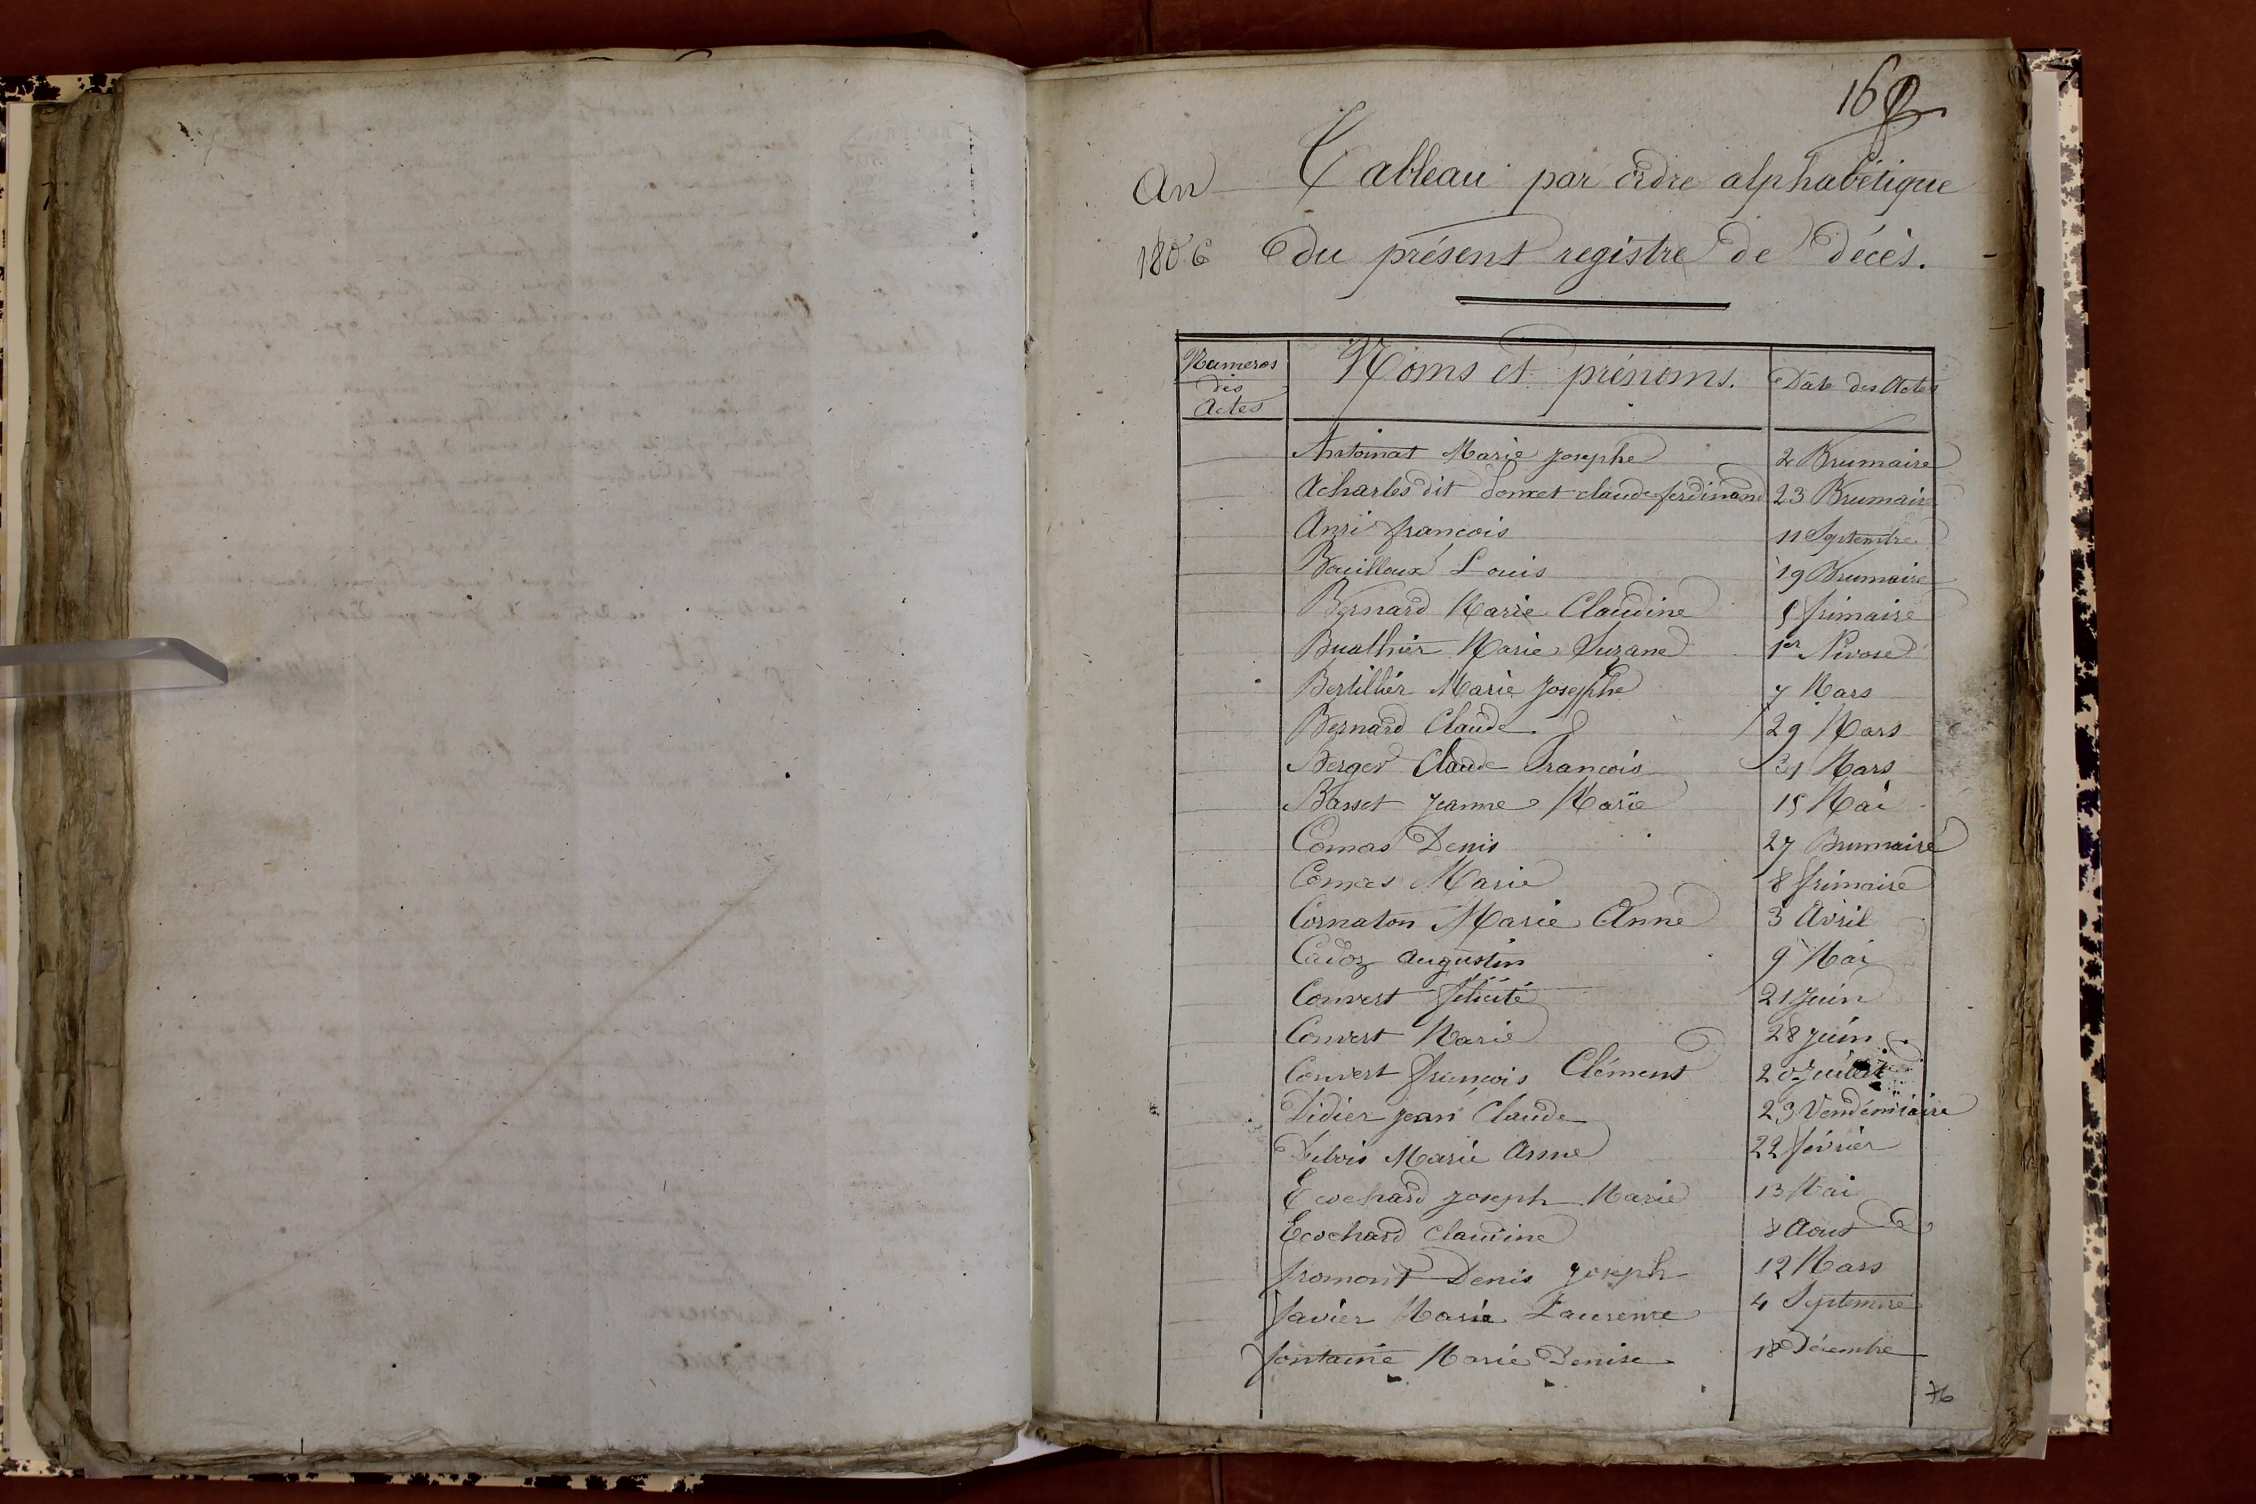 16
An Tableau par ordre alphabétique
1806 du présent registre de décès.
Numeros des Actes Noms et prénoms. Date des Actes
Antoinat Marie Josephe 2 Brumaire
Acharles dit claude ferdinand 23 Brumaire
Anri françois 11 Septembre
Bouilloux Louis 19 Brumaire
Bernard Marie Claudine 5 frimaire
Buathier Marie Suzane 1er Nivose
Bertillier Marie Josephe 7 Mars
Bernard Claude 29 Mars
Berger Claude François 31 Mars
Basset Jeanne Marie 15 Mai
Comas Denis 27 Brumaire
Comas Marie 8 frimaire
Cornaton Marie Anne 3 Avril
Cadoz Augustin 9 Mai
Convert félicité 21 Juin
Convert Marie 28 Juin
Convert françois Clément 20 Juillet
Didier Jean Claude 23 Vendémiaire
Dubois Marie Anne 22 février
Ecochard Joseph Marie 13 Mai
Ecochard Claudine 8 Aout
fromont Denis Joseph 12 Mars
favier Marie Laurence 4 Septembre
fontaine Marie Denise 18 Décembre
76